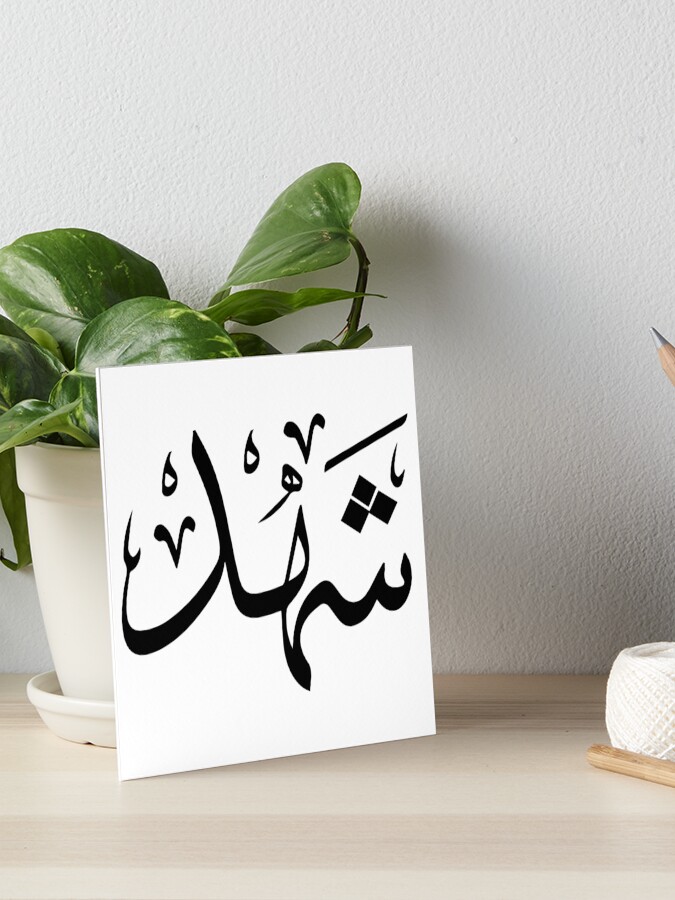 شَهد